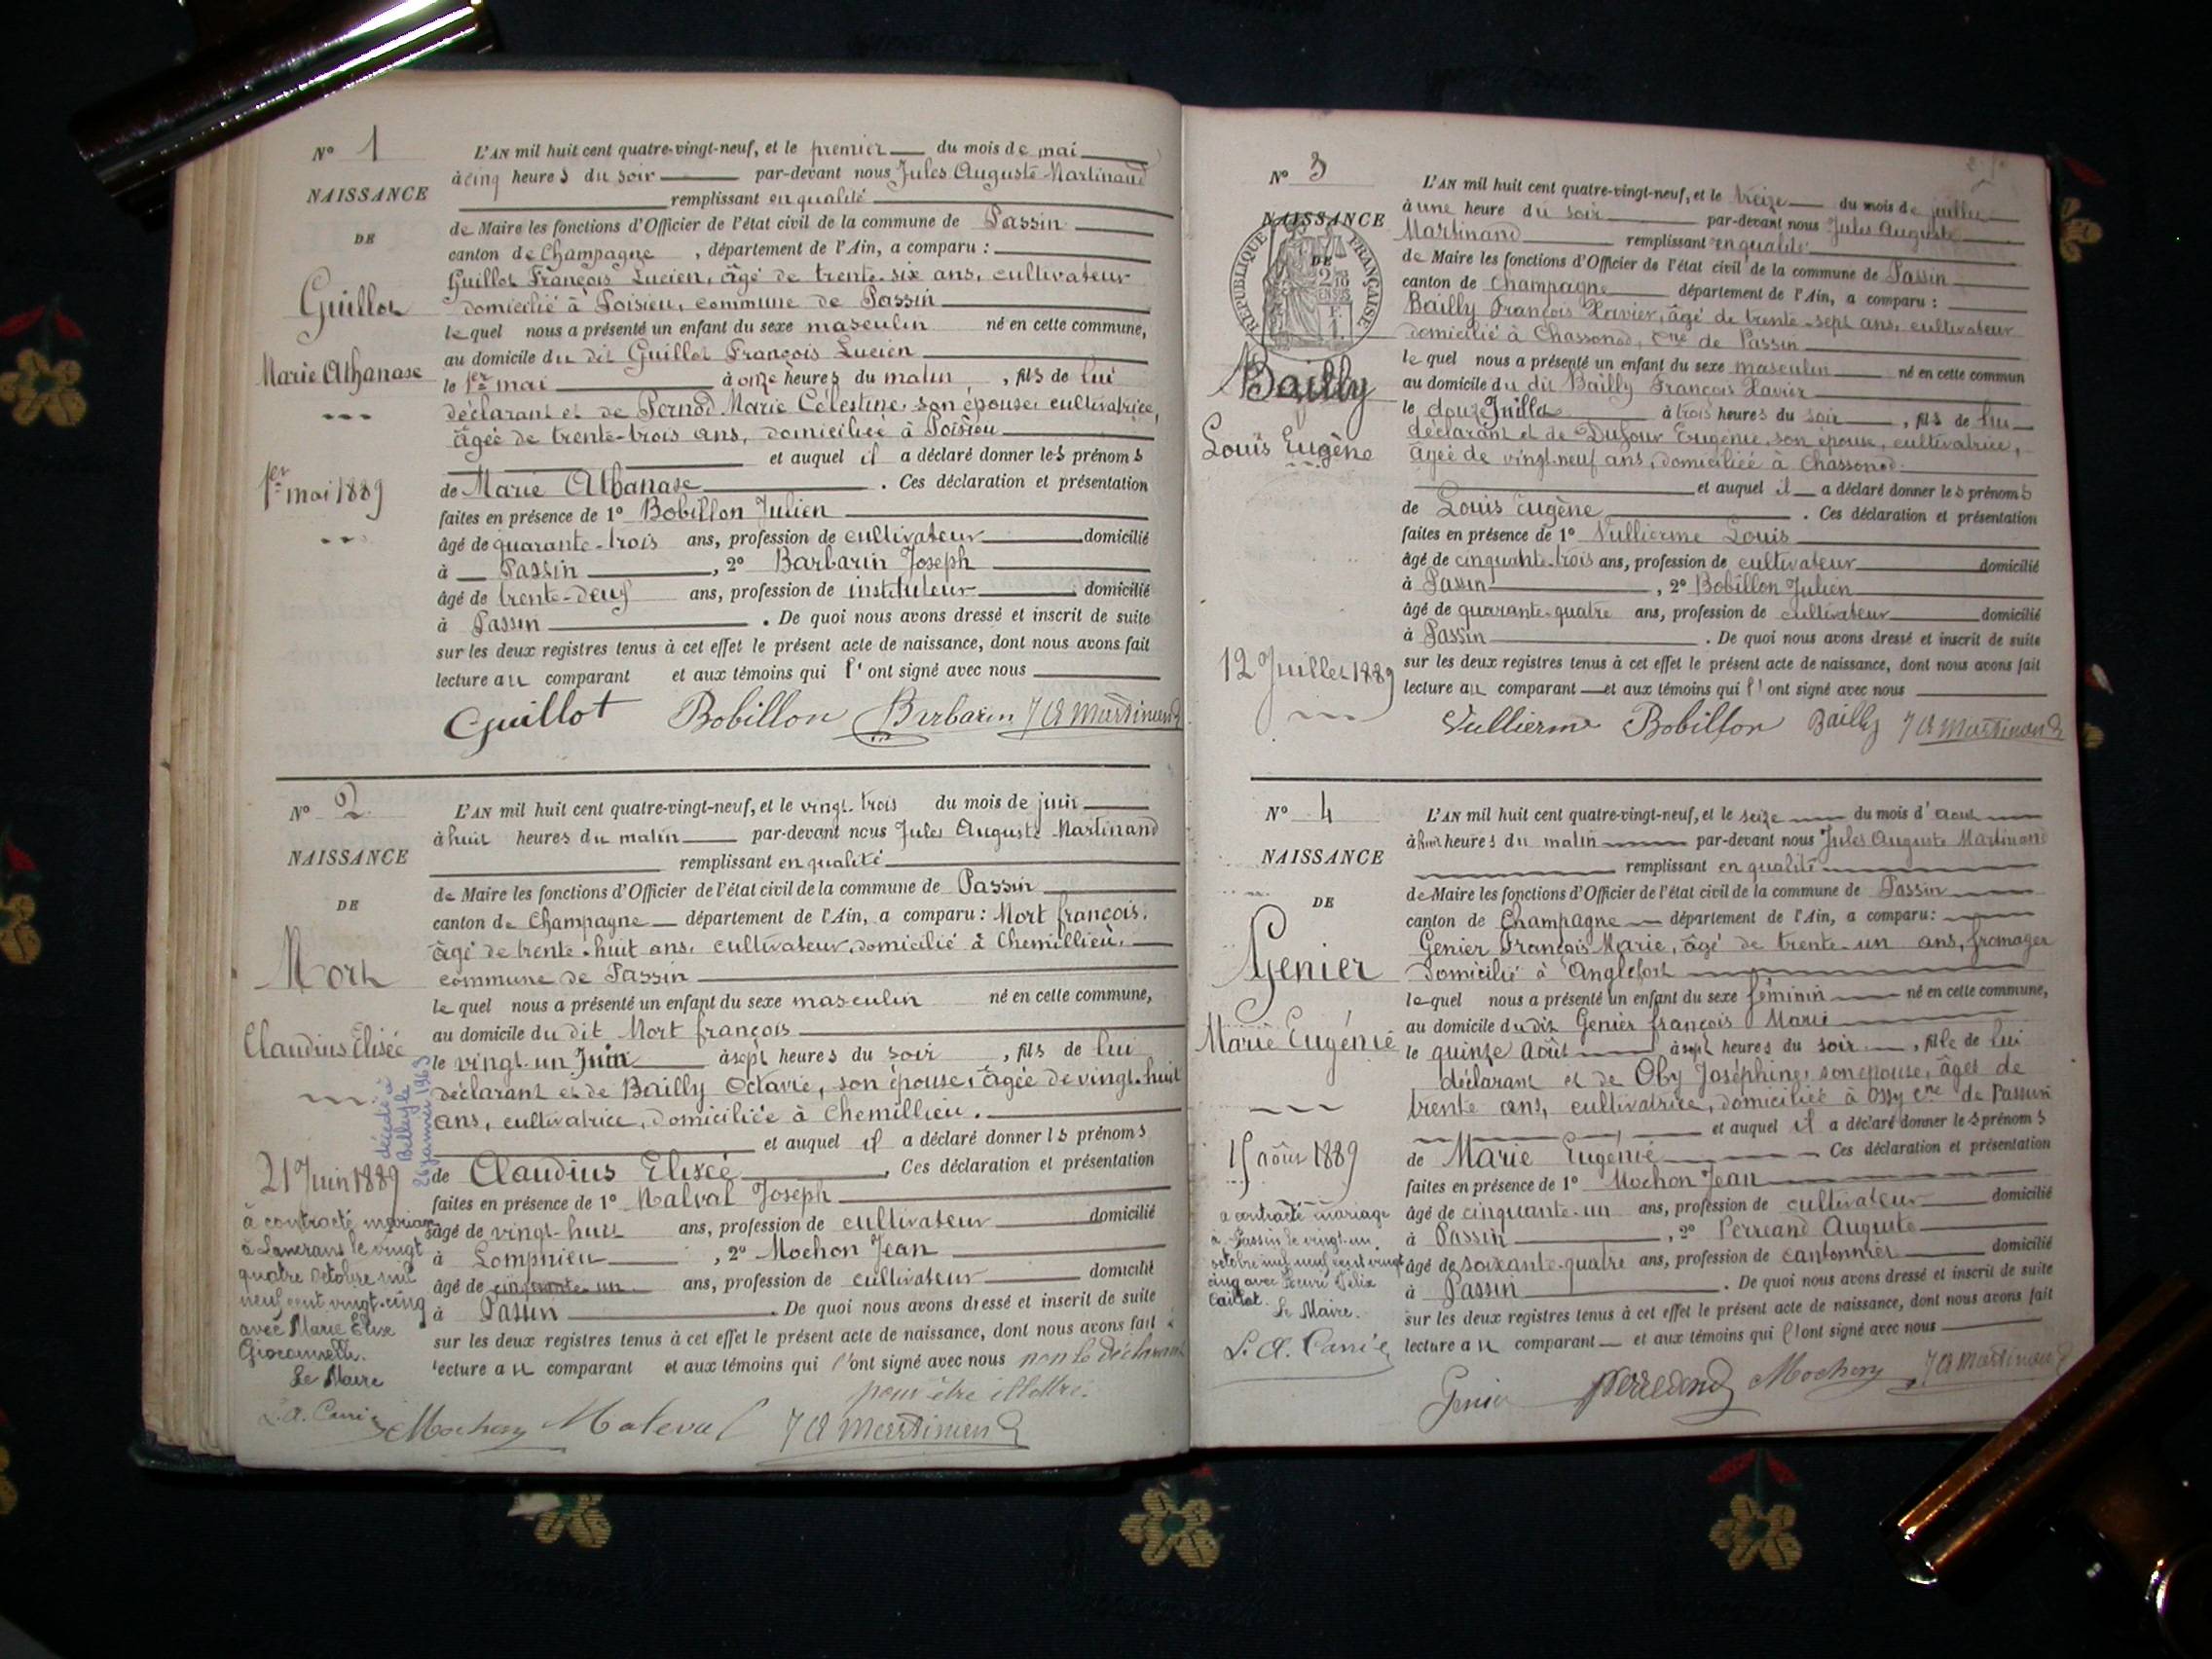 N° 1
NAISSANCE
DE
Guillot
Marie Athanase
1er mai 1889
L'AN mil huit cent quatre-vingt-neuf, et le premier du mois de mai
à cinq heures du soir par-devant nous Jules Auguste Martinand
remplissant en qualité
de Maire les fonctions d'Officier de l'état civil de la commune de Passin
canton de Champagne, département de l'Ain, a comparu :
Guillot François Lucien, âgé de trente-six ans, cultivateur
domicilié à Poisieu, commune de Passin
lequel nous a présenté un enfant du sexe masculin né en cette commune,
au domicile du dit Guillot François Lucien
le 1er mai à onze heures du matin, fils de lui
déclarant et de Pernod Marie Célestine, son épouse, cultivatrice,
âgée de trente-trois ans, domiciliée à Poisieu
et auquel il a déclaré donner les prénoms
de Marie Athanase. Ces déclaration et présentation
faites en présence de 1° Bobillon Julien
âgé de quarante-trois ans, profession de cultivateur domicilié
à Passin, 2° Barbarin Joseph
âgé de trente-deux ans, profession de instituteur domicilié
à Passin. De quoi nous avons dressé et inscrit de suite
sur les deux registres tenus à cet effet le présent acte de naissance, dont nous avons fait
lecture au comparant et aux témoins qui l'ont signé avec nous
Guillot Bobillon Barbarin J A Martinand
N° 2
NAISSANCE
DE
Mort
Claudius Elisée
décédé à
Belley le
26 janvier 1963
21 Juin 1889
à contracté mariage
à Lancrans le vingt
quatre Octobre mil
neuf cent vingt-cinq
avec Marie Elise
Le Maire
L'AN mil huit cent quatre-vingt-neuf, et le vingt-trois du mois de juin
à huit heures du matin par-devant nous Jules Auguste Martinand
remplissant en qualité
de Maire les fonctions d'Officier de l'état civil de la commune de Passin
canton de Champagne département de l'Ain, a comparu : Mort françois,
âgé de trente-huit ans, cultivateur, domicilié à Chemillieu,
commune de Passin
lequel nous a présenté un enfant du sexe masculin né en cette commune,
au domicile du dit Mort françois
le vingt-un Juin à sept heures du soir, fils de lui
déclarant et de Bailly Octavie, son épouse, âgée de vingt-huit
ans, cultivatrice, domiciliée à Chemillieu.
et auquel il a déclaré donner les prénoms
de Claudius Elisée, Ces déclaration et présentation
faites en présence de 1° Malval Joseph
âgé de vingt-huit ans, profession de cultivateur domicilié
à Lompnieu, 2° Mochon Jean
âgé de cinquante-un ans, profession de cultivateur domicilié
à Passin. De quoi nous avons dressé et inscrit de suite
sur les deux registres tenus à cet effet le présent acte de naissance, dont nous avons fait
lecture au comparant et aux témoins qui l'ont signé avec nous non le déclarant
pour être illettré.
Mochon Malval J A Martinand
N° 3
NAISSANCE
DE
RÉPUBLIQUE FRANÇAISE
Bailly
Louis Eugène
12 Juillet 1889
L'AN mil huit cent quatre-vingt-neuf, et le treize du mois de juillet
à une heure du soir par-devant nous Jules Auguste
Martinand remplissant en qualité
de Maire les fonctions d'Officier de l'état civil de la commune de Passin
canton de Champagne département de l'Ain, a comparu :
Bailly François Xavier, âgé de trente-sept ans, cultivateur
domicilié à Chassonod, cne de Passin
lequel nous a présenté un enfant du sexe masculin né en cette commun
au domicile du dit Bailly François Xavier
le douze Juillet à trois heures du soir, fils de lui
déclarant et de Dufour Eugénie, son épouse, cultivatrice,
âgée de vingt-neuf ans, domiciliée à Chassonod.
et auquel il a déclaré donner les prénoms
de Louis Eugène. Ces déclaration et présentation
faites en présence de 1° Vullierme Louis
âgé de cinquante-trois ans, profession de cultivateur domicilié
à Passin, 2° Bobillon Julien
âgé de quarante-quatre ans, profession de cultivateur domicilié
à Passin. De quoi nous avons dressé et inscrit de suite
sur les deux registres tenus à cet effet le présent acte de naissance, dont nous avons fait
lecture au comparant et aux témoins qui l'ont signé avec nous
Vullierme Bobillon Bailly J A Martinand
N° 4
NAISSANCE
DE
Genier
Marie Eugénie
15 août 1889
a contracté mariage
à Passin le vingt-un
octobre mil neuf cent vingt
cinq avec Henri Félix
Caillot.
Le Maire.
L'AN mil huit cent quatre-vingt-neuf, et le seize du mois d'août
à huit heures du matin par-devant nous Jules Auguste Martinand
remplissant en qualité
de Maire les fonctions d'Officier de l'état civil de la commune de Passin
canton de Champagne département de l'Ain, a comparu :
Genier François Marie, âgé de trente-un ans, fromager
domicilié à Anglefort
lequel nous a présenté un enfant du sexe féminin né en cette commune,
au domicile du dit Genier françois Marie
le quinze Août à sept heures du soir, fille de lui
déclarant et de Oby Joséphine, son épouse, âgée de
trente ans, cultivatrice, domiciliée à Ossy cne de Passin
et auquel il a déclaré donner les prénoms
de Marie Eugénie Ces déclaration et présentation
faites en présence de 1° Mochon Jean
âgé de cinquante-un ans, profession de cultivateur domicilié
à Passin, 2° Perreand Auguste
âgé de soixante-quatre ans, profession de cantonnier domicilié
à Passin. De quoi nous avons dressé et inscrit de suite
sur les deux registres tenus à cet effet le présent acte de naissance, dont nous avons fait
lecture au comparant et aux témoins qui l'ont signé avec nous
Genier Perreand Mochon J A Martinand